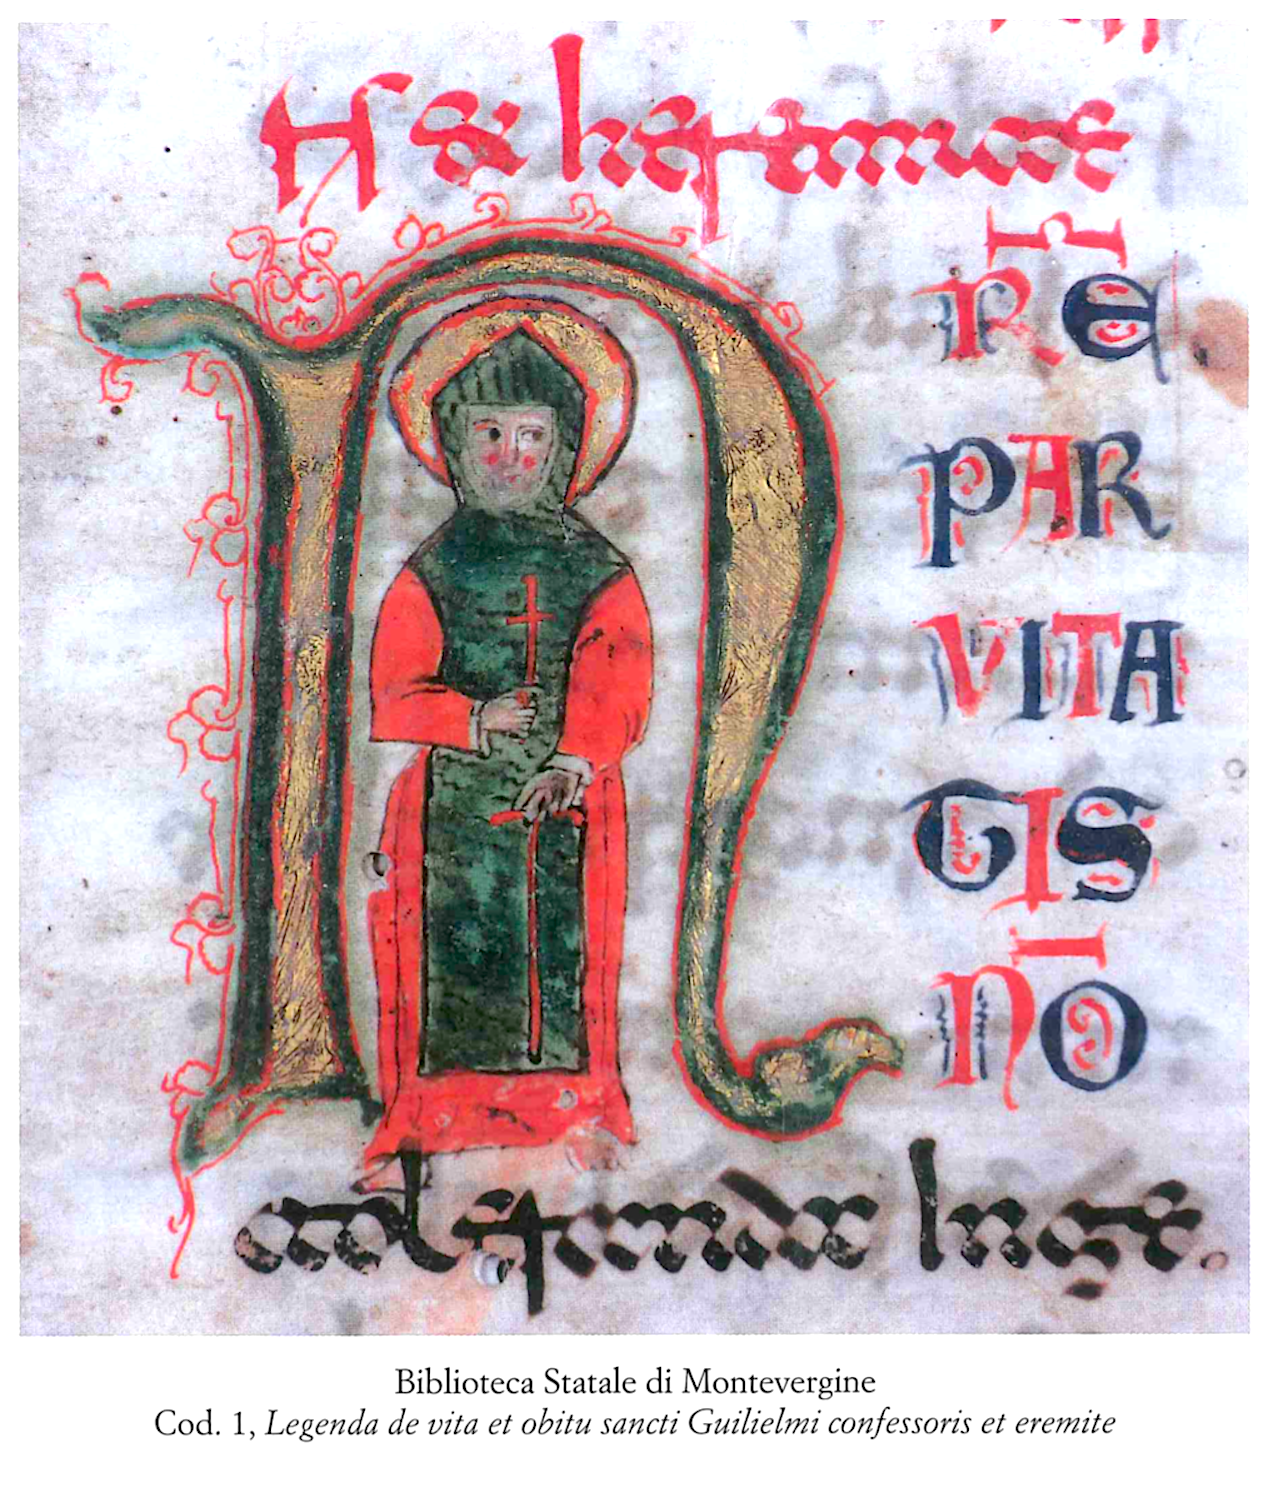 & heremite
NR̄E
PAR
VITA
TIS
NŌ
Biblioteca Statale di Montevergine
Cod. 1, Legenda de vita et obitu sancti Guilielmi confessoris et eremite